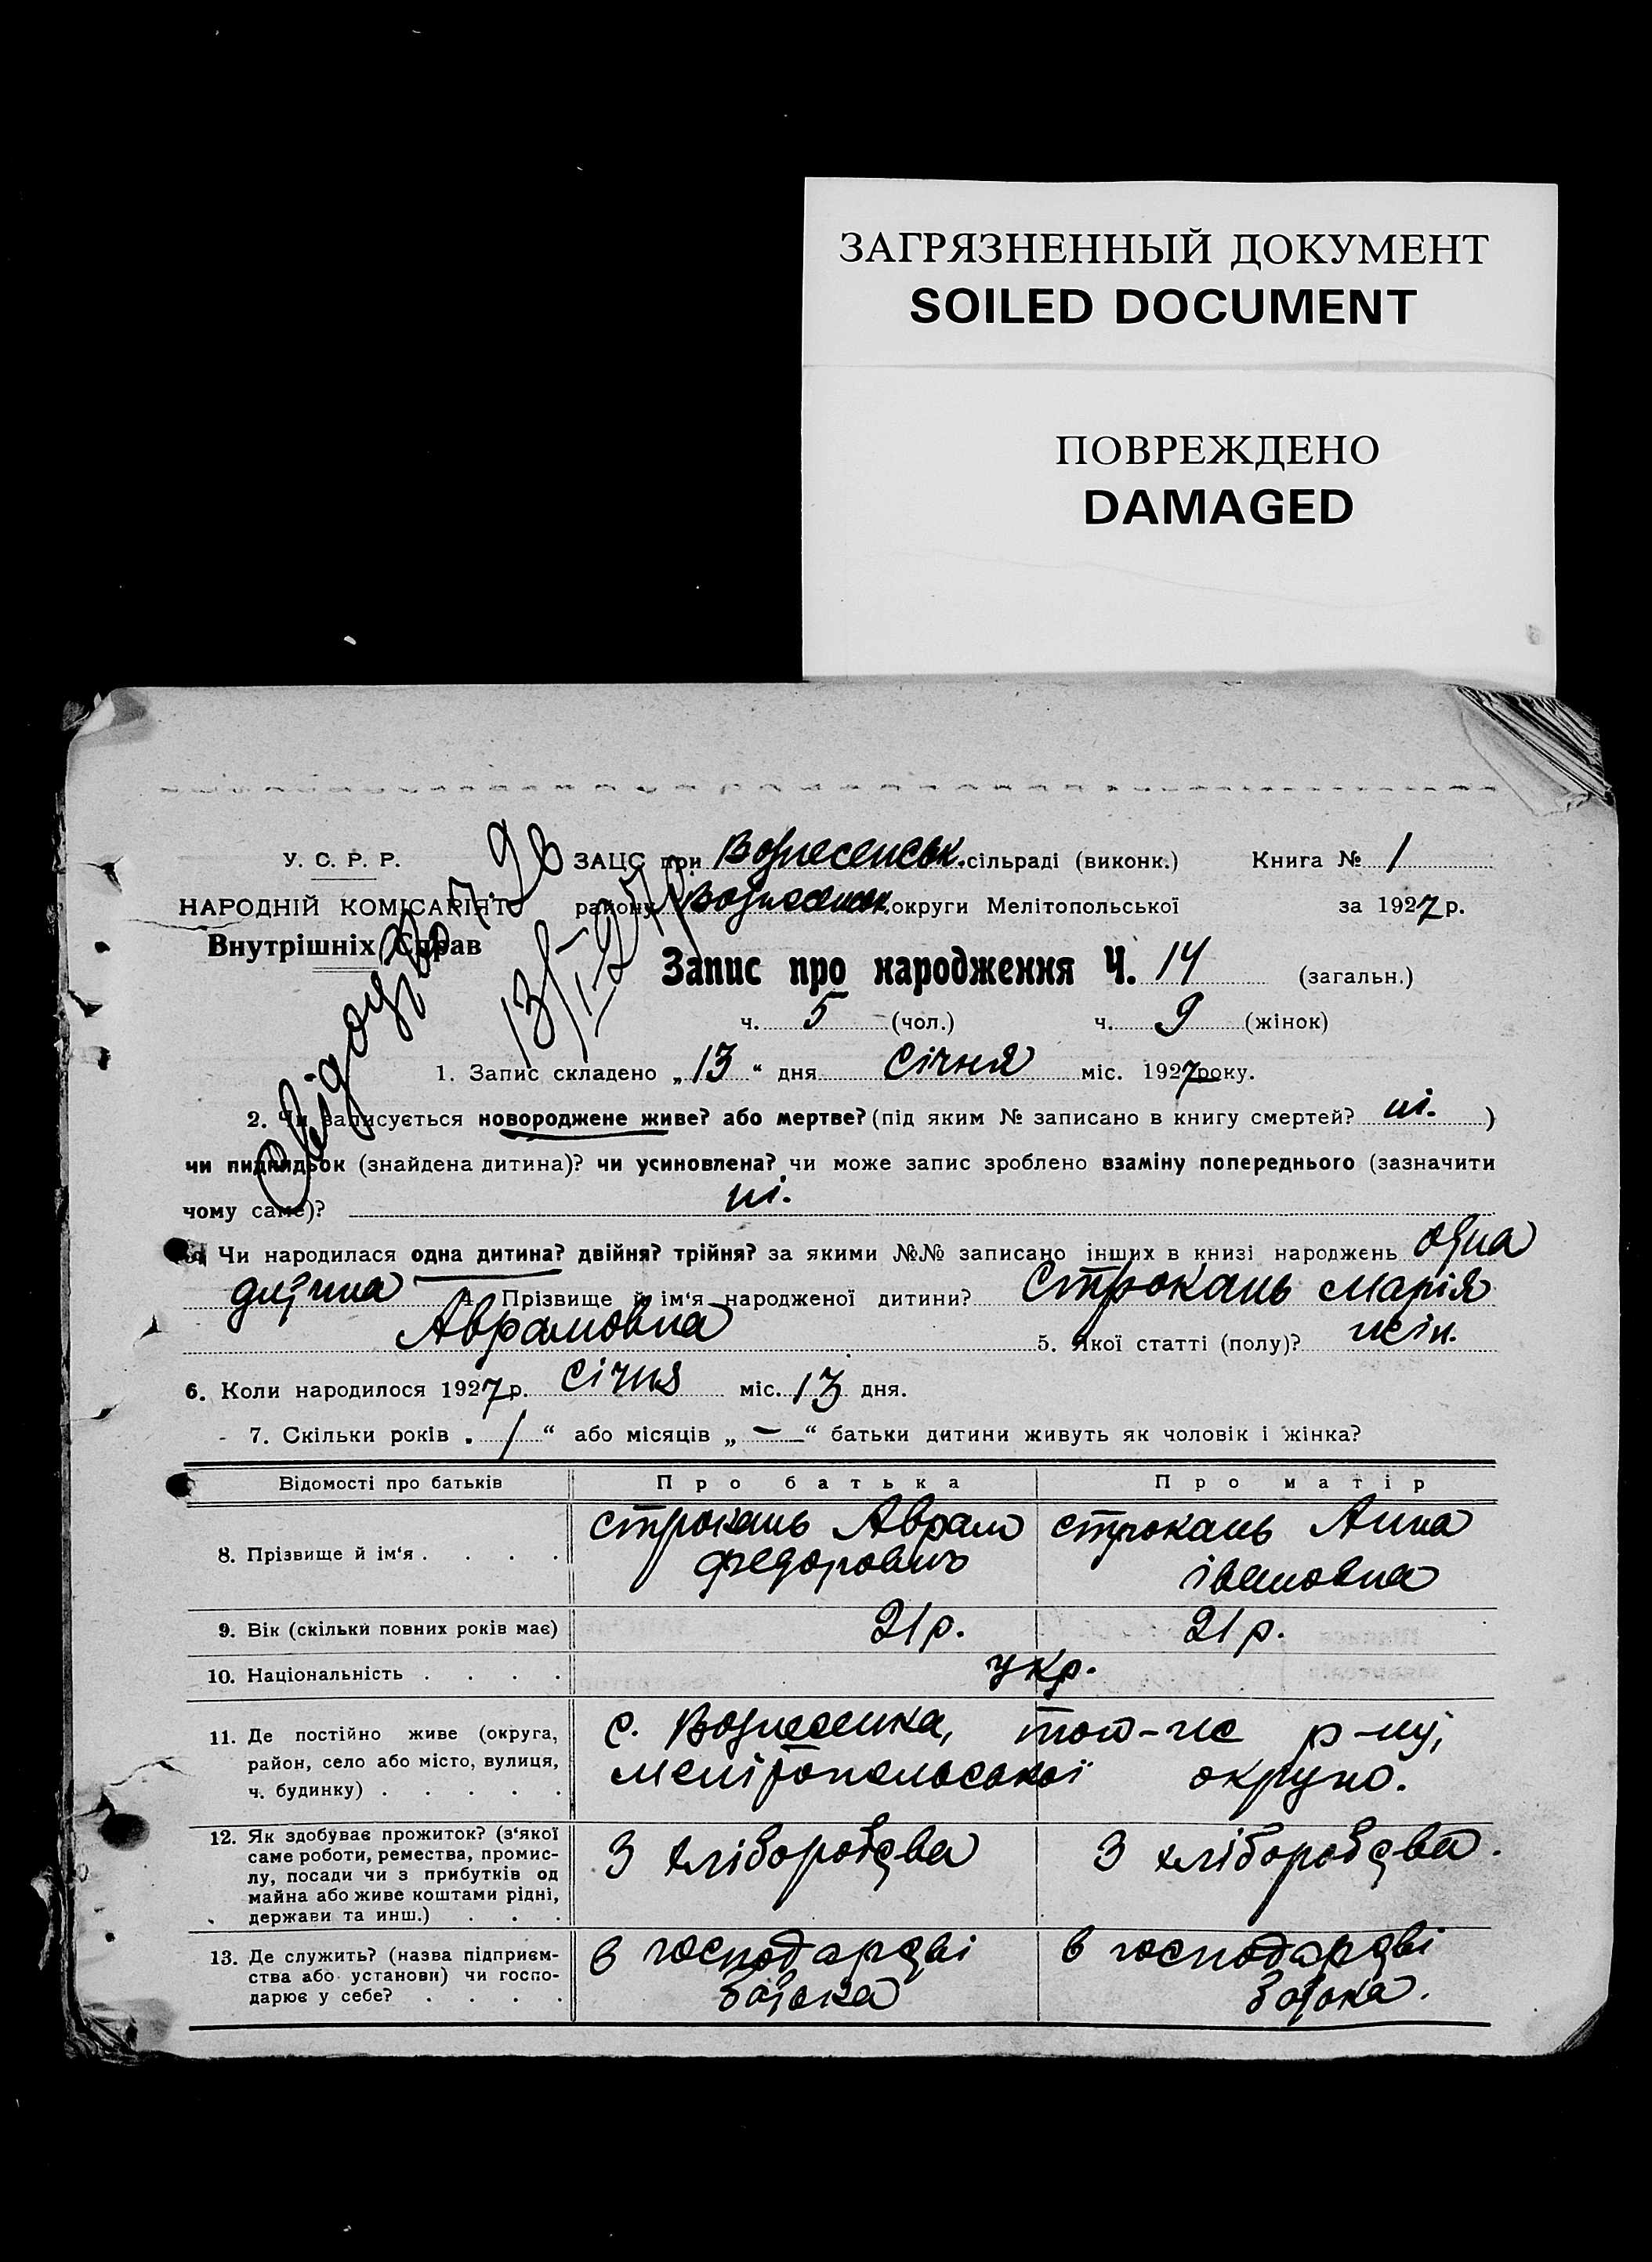 ЗАГРЯЗНЕННЫЙ ДОКУМЕНТ
SOILED DOCUMENT
ПОВРЕЖДЕНО
DAMAGED
У. С. Р. Р.
НАРОДНІЙ КОМІСАРІЯТ
Внутрішніх Справ
ЗАЦС при Вознесенськ. сільраді (виконк.) Книга № 1
району Вознесенськ. округи Мелітопольської за 1927 р.
Запис про народження Ч. 14 (загальн.)
ч. 5 (чол.) ч. 9 (жінок)
13/I-27
1. Запис складено „13“ дня Січня міс. 1927 року.
2. Чи записується новороджене живе? або мертве? (під яким № записано в книгу смертей? ні. )
чи пидкидьок (знайдена дитина)? чи усиновлена? чи може запис зроблено взаміну попереднього (зазначити
чому саме)? ні.
3. Чи народилася одна дитина? двійня? трійня? за якими №№ записано інших в книзі народжень одна
дитина 4. Прізвище й ім'я народженої дитини? Строкань Марія
Аврамовна 5. Якої статті (полу)? жін.
6. Коли народилося 1927 р. Січня міс. 13 дня.
7. Скільки років „ 1 “ або місяців „ — “ батьки дитини живуть як чоловік і жінка?
Відомості про батьків Про батька Про матір
8. Прізвище й ім'я . . . . Строкань Аврам Федорович Строкань Анна івановна
9. Вік (скільки повних років має) 21 р. 21 р.
10. Національність . . . . укр.
11. Де постійно живе (округа,
район, село або місто, вулиця,
ч. будинку) . . . . .
с. Вознесенка, того-ж р-ну,
Мелітопольської округи.
12. Як здобуває прожиток? (з'якої
саме роботи, ремества, промис-
лу, посади чи з прибутків од
майна або живе коштами рідні,
держави та инш.) . . .
З хліборобства З хліборобства.
13. Де служить? (назва підприєм-
ства або установи) чи госпо-
дарює у себе? . . . .
в господарстві батька в господарстві батька.